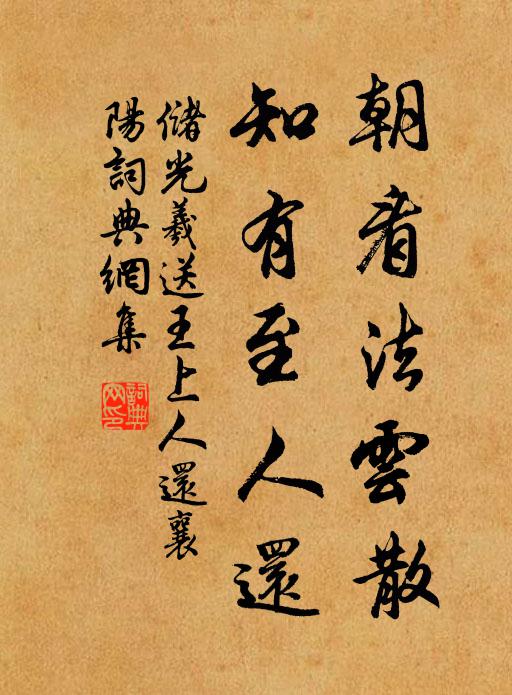 朝看法雲散
知有至人還
儲光羲送王上人還襄
陽詞典網集
詞典
网印